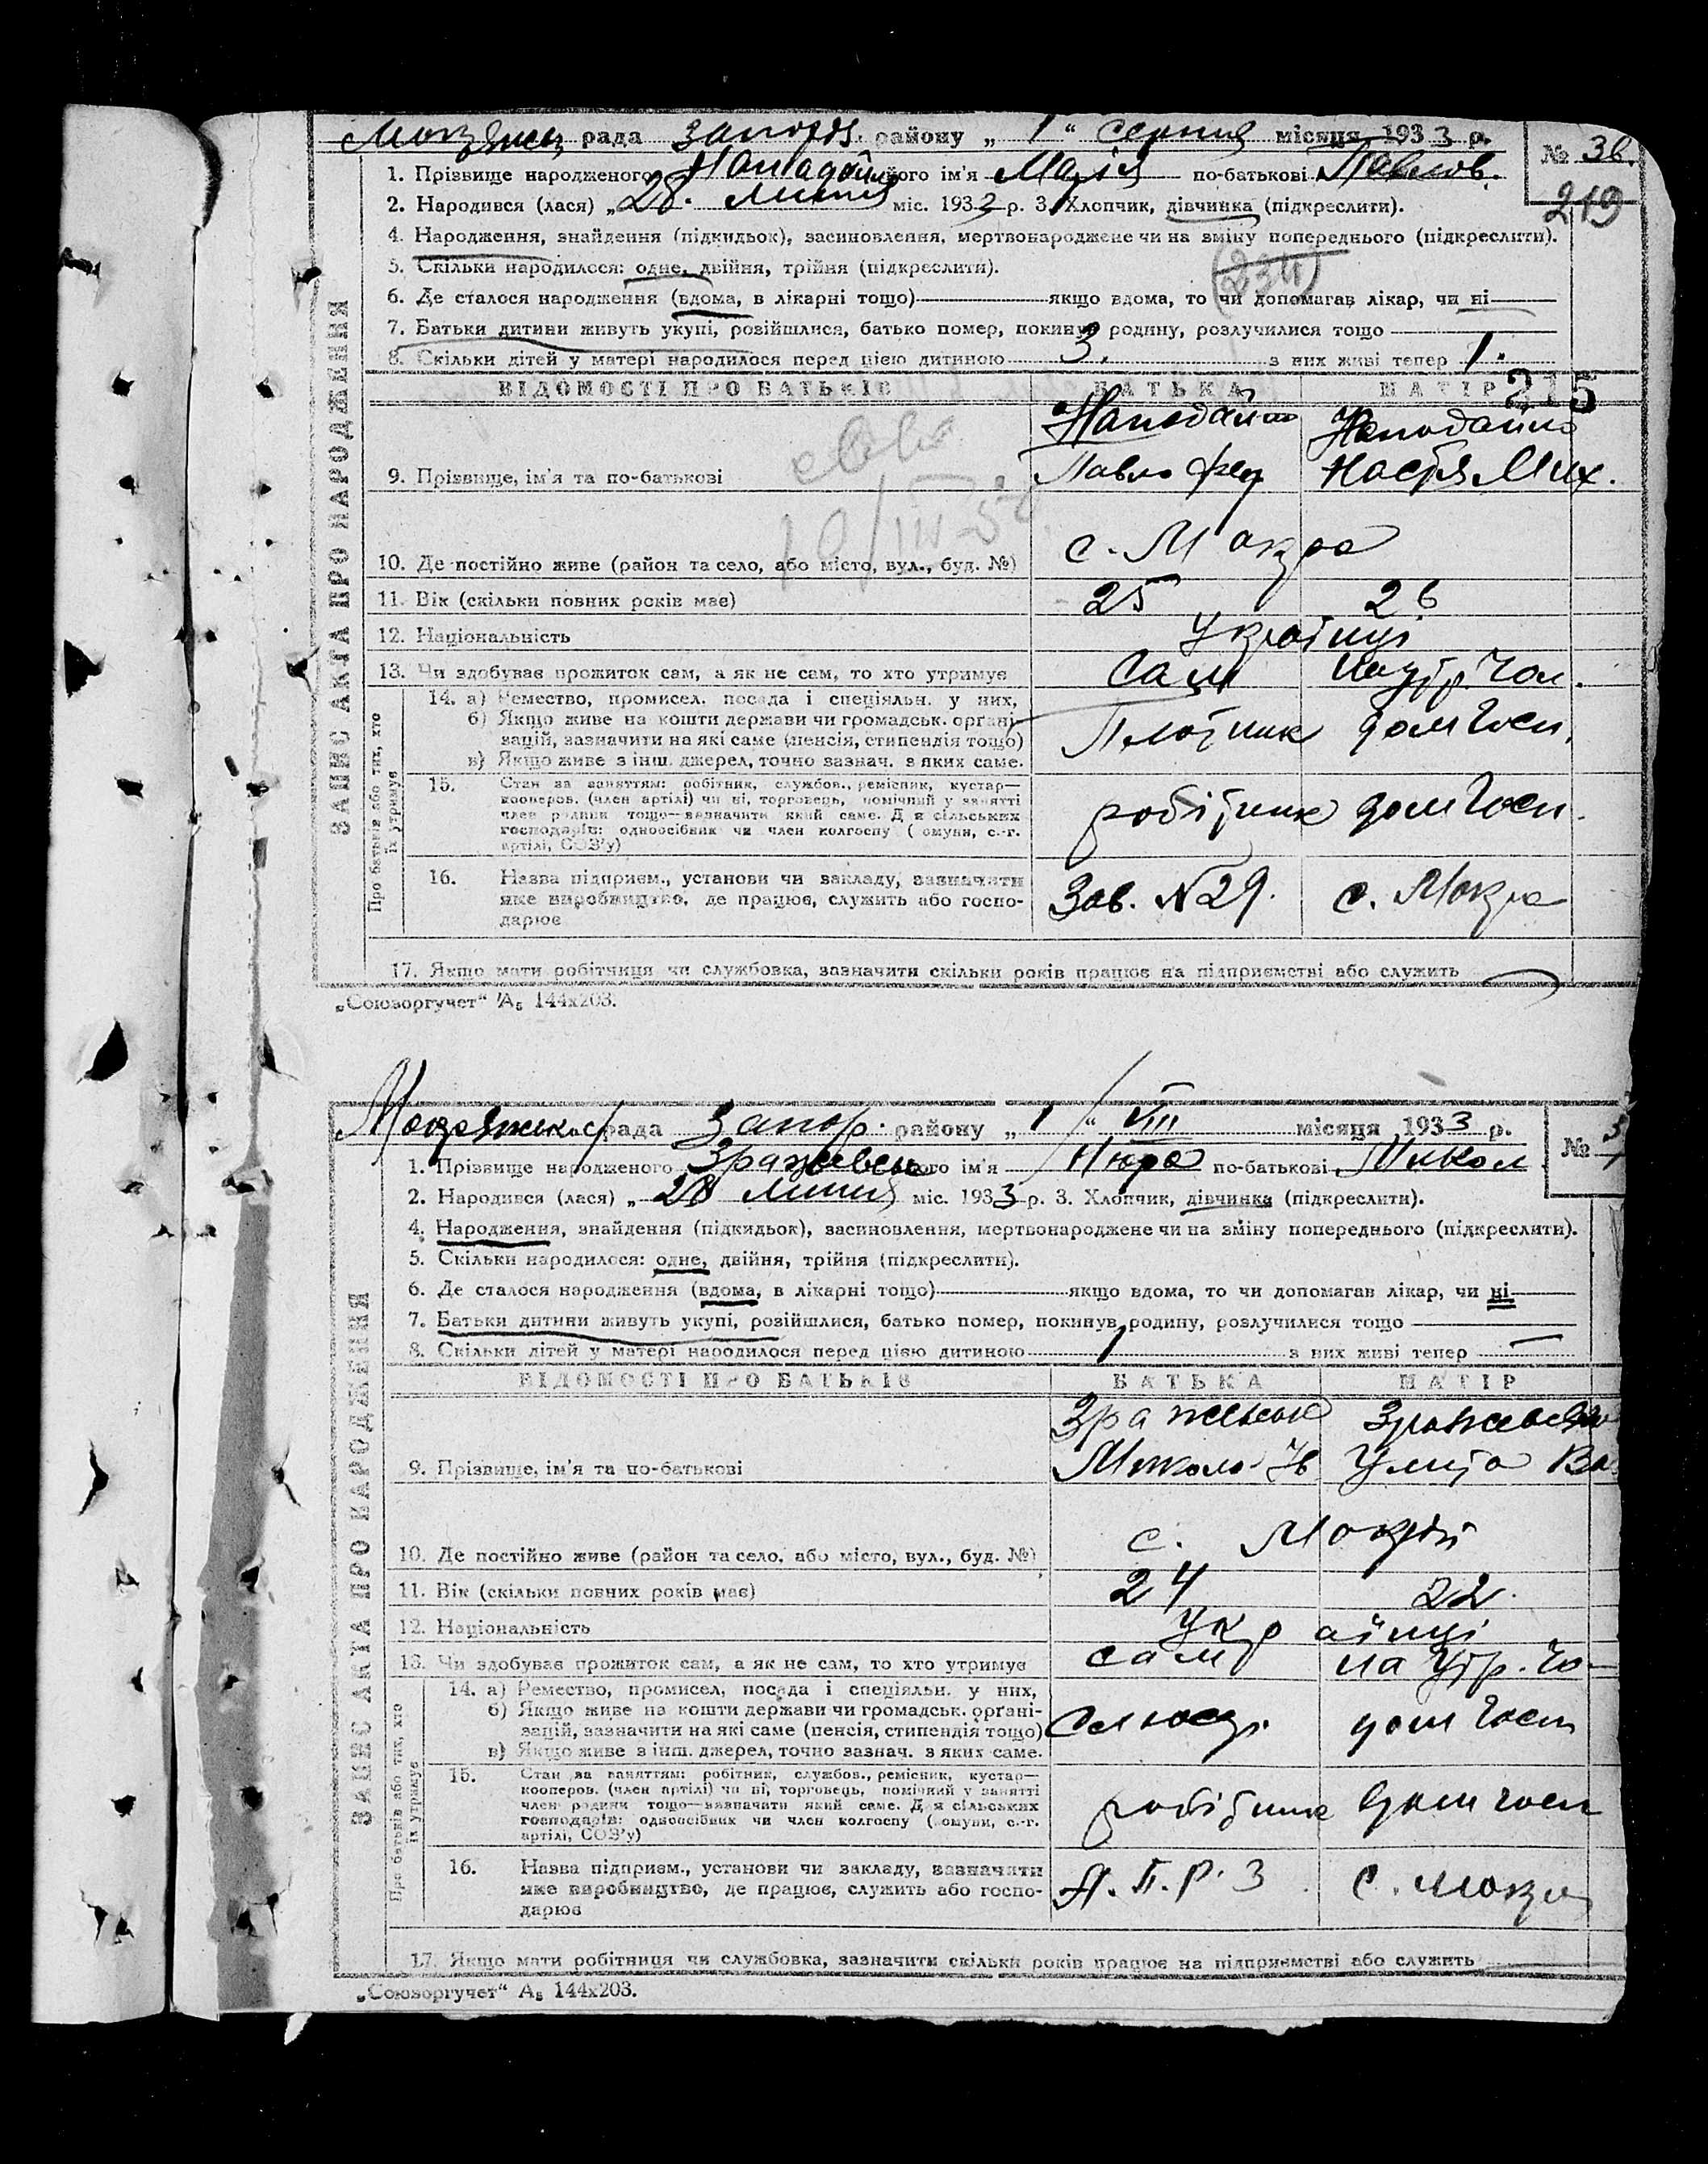 рада Запоріз. району „ 1 “ серпня місяця 1933 р.
№ 36.
219
1. Прізвище народженого його ім'я Марія по-батькові Павлов.
2. Народився (лася) „28. липня міс. 1933 р. 3. Хлопчик, дівчинка (підкреслити).
4. Народження, знайдення (підкидьок), засиновлення, мертвонароджене чи на зміну попереднього (підкреслити).
(234)
5. Скільки народилося: одне, двійня, трійня (підкреслити).
6. Де сталося народження (вдома, в лікарні тощо) якщо вдома, то чи допомагав лікар, чи ні
7. Батьки дитини живуть укупі, розійшлися, батько помер, покинув родину, розлучилися тощо
8. Скільки дітей у матері народилося перед цією дитиною 3. з них живі тепер 1.
ВІДОМОСТІ ПРО БАТЬКІВ БАТЬКА МАТІР
215
9. Прізвище, ім'я та по-батькові Павло Фед Настя Мих.
10/III-5
10. Де постійно живе (район та село, або місто, вул., буд. №) с. Мокра
11. Вік (скільки повних років має) 25 26
12. Національність Українці
13. Чи здобуває прожиток сам, а як не сам, то хто утримує Сам на утр. чол.
14. а) Ремество, промисел, посада і спеціяльн. у них,
б) Якщо живе на кошти держави чи громадськ. організацій, зазначити на які саме (пенсія, стипендія тощо)
в) Якщо живе з інш. джерел, точно зазнач. з яких саме.
Плотник дом госп.
15. Стан за заняттям: робітник, службов., ремісник, кустар—
кооперов. (член артілі) чи ні, торговець, помічний у занятті
член родини тощо—зазначити який саме. Для сільських
господарів: одноосібник чи член колгоспу (комуни, с.-г.
артілі, СОЗ'у)
робітник дом госп.
16. Назва підприєм., установи чи закладу, зазначити
яке виробництво, де працює, служить або госпо-
дарює
Зав. №29. с. Мокра
17. Якщо мати робітниця чи службовка, зазначити скільки років працює на підприємстві або служить
ЗАПИС АКТА ПРО НАРОДЖЕННЯ
Про батьків або тих, хто
їх утримує
„Союзоргучет“ А₅ 144х203.
рада Запор. району „ 1 “ VIII місяця 1933 р.
№
1. Прізвище народженого його ім'я Нюра по-батькові Микол
2. Народився (лася) „ 28 липня міс. 1933 р. 3. Хлопчик, дівчинка (підкреслити).
4. Народження, знайдення (підкидьок), засиновлення, мертвонароджене чи на зміну попереднього (підкреслити).
5. Скільки народилося: одне, двійня, трійня (підкреслити).
6. Де сталося народження (вдома, в лікарні тощо) якщо вдома, то чи допомагав лікар, чи ні
7. Батьки дитини живуть укупі, розійшлися, батько помер, покинув родину, розлучилися тощо
8. Скільки дітей у матері народилося перед цією дитиною 1 з них живі тепер —
ВІДОМОСТІ ПРО БАТЬКІВ БАТЬКА МАТІР
9. Прізвище, ім'я та по-батькові Микола Ів Улита Ва
10. Де постійно живе (район та село, або місто, вул., буд. №) с. Мокрій
11. Вік (скільки повних років має) 24 22.
12. Національність Українці
13. Чи здобуває прожиток сам, а як не сам, то хто утримує сам на утр. чо-
14. а) Ремество, промисел, посада і спеціяльн. у них,
б) Якщо живе на кошти держави чи громадськ. органі-
зацій, зазначити на які саме (пенсія, стипендія тощо)
в) Якщо живе з інш. джерел, точно зазнач. з яких саме.
дом госп
15. Стан за заняттям: робітник, службов., ремісник, кустар—
кооперов. (член артілі) чи ні, торговець, помічний у занятті
член родини тощо—зазначити який саме. Для сільських
господарів: одноосібник чи член колгоспу (комуни, с.-г.
артілі, СОЗ'у)
робітник дом госп
16. Назва підприєм., установи чи закладу, зазначити
яке виробництво, де працює, служить або госпо-
дарює
П.Р.З с. Мокра
17. Якщо мати робітниця чи службовка, зазначити скільки років працює на підприємстві або служить
ЗАПИС АКТА ПРО НАРОДЖЕННЯ
Про батьків або тих, хто
їх утримує
„Союзоргучет“ А₅ 144х203.